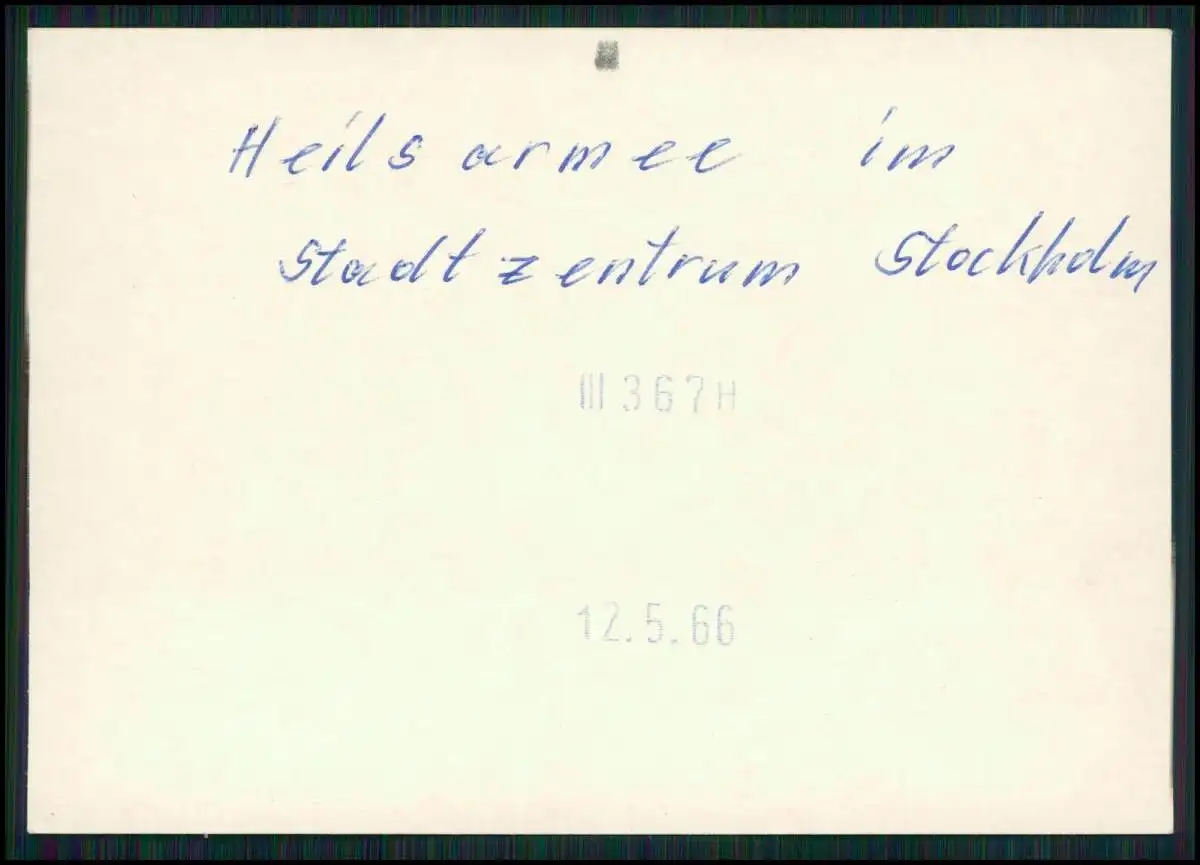 Heilsarmee im
Stadtzentrum Stockholm
III 367H
12.5.66